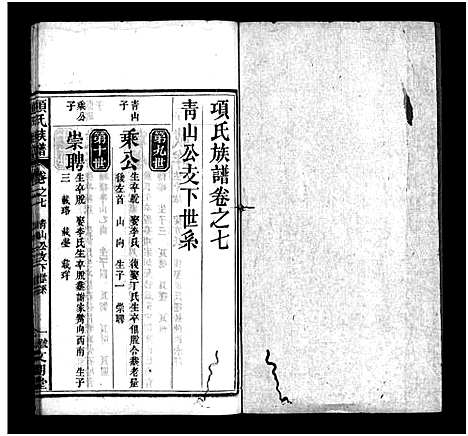 項氏族譜卷之七
青山公支下世系
第九世
青山公子
乘公
生卒殁 娶李氏 後娶丁氏生卒俱殁公葬老屋
後左首 山 向 生子一 崇聘
第十世
乘公子
崇聘
生卒殁 娶李氏生卒殁葬謝家灣向西南 生子
三 載珞 載瑩
項氏族譜
卷之七 青山公支下世系